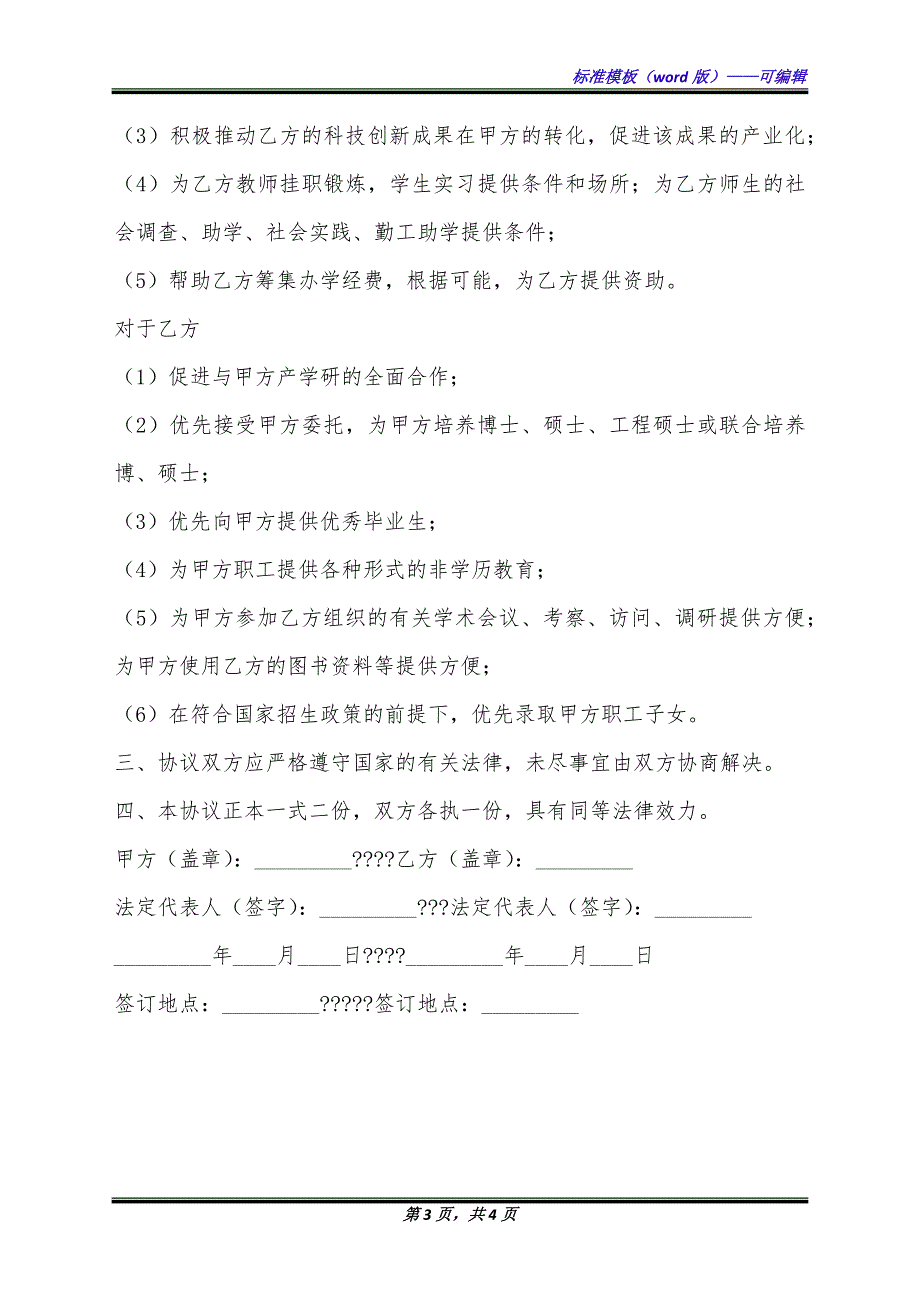 标准模板（word 版）——可编辑
（3）积极推动乙方的科技创新成果在甲方的转化，促进该成果的产业化；
（4）为乙方教师挂职锻炼，学生实习提供条件和场所；为乙方师生的社
会调查、助学、社会实践、勤工助学提供条件；
（5）帮助乙方筹集办学经费，根据可能，为乙方提供资助。
对于乙方
（1）促进与甲方产学研的全面合作；
（2）优先接受甲方委托，为甲方培养博士、硕士、工程硕士或联合培养
博、硕士；
（3）优先向甲方提供优秀毕业生；
（4）为甲方职工提供各种形式的非学历教育；
（5）为甲方参加乙方组织的有关学术会议、考察、访问、调研提供方便；
为甲方使用乙方的图书资料等提供方便；
（6）在符合国家招生政策的前提下，优先录取甲方职工子女。
三、协议双方应严格遵守国家的有关法律，未尽事宜由双方协商解决。
四、本协议正本一式二份，双方各执一份，具有同等法律效力。
甲方（盖章）：_________????乙方（盖章）：_________
法定代表人（签字）：_________???法定代表人（签字）：_________
_________年____月____日????_________年____月____日
签订地点：_________?????签订地点：_________
第 3 页，共 4 页